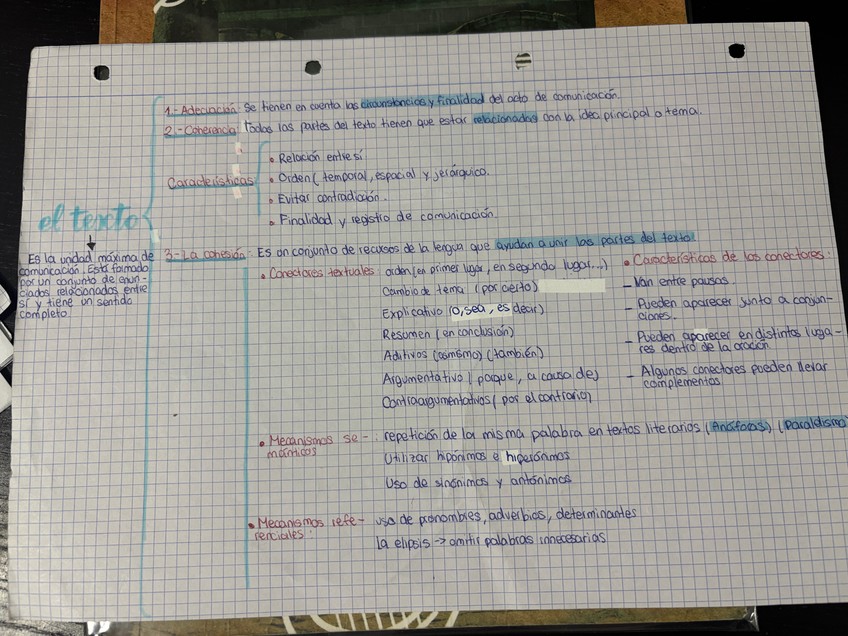 1-Adecuación: Se tienen en cuenta las circunstancias y finalidad del acto de comunicación.
2-Coherencia: Todas las partes del texto tienen que estar relacionadas con la idea principal o tema.
Características
• Relación entre sí
• Orden (temporal, espacial y jerárquico.
• Evitar contradicción.
• Finalidad y registro de comunicación.
el texto
Es la unidad máxima de
comunicación. Está formado
por un conjunto de enun-
ciados relacionados entre
sí y tiene un sentido
completo.
3-La cohesión: Es un conjunto de recursos de la lengua que ayudan a unir las partes del texto.
• Conectores textuales: orden (en primer lugar, en segundo lugar...)
Cambio de tema (por cierto)
Explicativo (o,sea, es decir)
Resumen (en conclusión)
Aditivos (asmismo) (también)
Argumentativo ( porque, a causa de)
Contraargumentativos ( por el contrario)
• Características de los conectores:
- Van entre pausas
- Pueden aparecer junto a conjun-
ciones.
- Pueden aparecer en distintos luga-
res dentro de la oración
- Algunos conectores pueden llevar
complementos
• Mecanismos se-
mánticos
: repetición de la misma palabra en textos literarios (Anáforas) (Paraldismo
Utilizar hipónimos e hiperónimos
Uso de sinónimos y antónimos
• Mecanismos refe-
renciales:
uso de pronombres, adverbios, determinantes
la elipsis → omitir palabras innecesarias